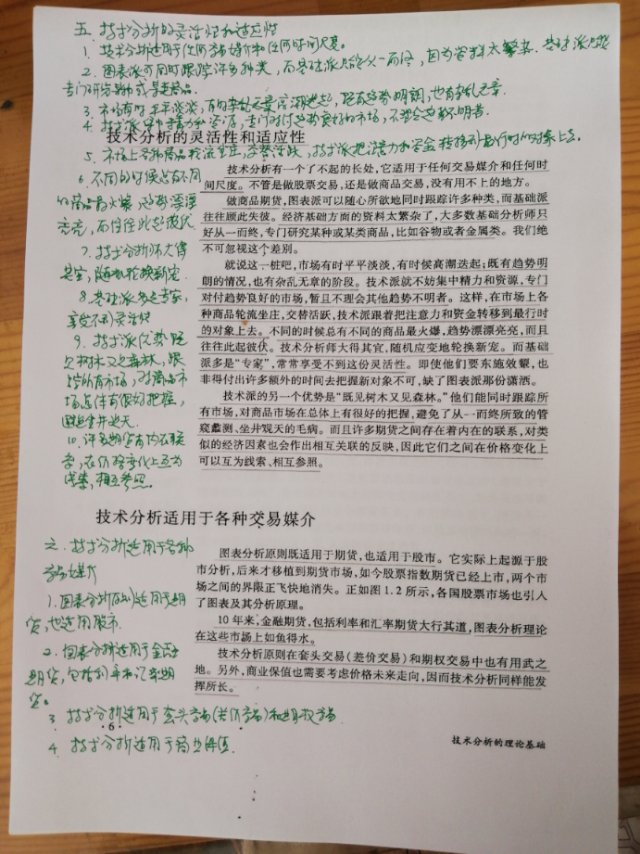 五、技术分析的灵活性和适应性
1. 技术分析适用于任何交易媒介和任何时间尺度。
2. 图表派可同时跟踪许多种类，而基础派只能从一而终，因为资料太繁杂，基础派只能
专门研究某种或某类商品。
3. 市场有时平平淡淡，有的
4. 技术派集中精力和资源，专门对付趋势良好的市场，不理会趋势不明者。
技术分析的灵活性和适应性
5. 市场上各种商品轮流坐庄，交替活跃，技术派把注意力和资金转移到最行时的对象上去。
6. 不同的时候总有不同
的商品最火爆，趋势漂漂
亮亮，而且往往此起彼伏
7. 技术分析师大得
其宜，随机轮换新宠
8. 基础派多是专家，
享受不到灵活性
9. 技术派优势既
见树木又见森林，跟
踪所有市场，对商品市
场总体有很好把握，
避免坐井观天
10. 许多期货有内在联
系，在价格变化上互为
线索，相互参照。
技术分析有一个了不起的长处，它适用于任何交易媒介和任何时
间尺度。不管是做股票交易，还是做商品交易，没有用不上的地方。
做商品期货，图表派可以随心所欲地同时跟踪许多种类，而基础派
往往顾此失彼。经济基础方面的资料太繁杂了，大多数基础分析师只
好从一而终，专门研究某种或某类商品，比如谷物或者金属类。我们绝
不可忽视这个差别。
就说这一桩吧，市场有时平平淡淡，有时候高潮迭起；既有趋势明
朗的情况，也有杂乱无章的阶段。技术派就不妨集中精力和资源，专门
对付趋势良好的市场，暂且不理会其他趋势不明者。这样，在市场上各
种商品轮流坐庄，交替活跃，技术派跟着把注意力和资金转移到最行时
的对象上去。不同的时候总有不同的商品最火爆，趋势漂漂亮亮，而且
往往此起彼伏。技术分析师大得其宜，随机应变地轮换新宠。而基础
派多是“专家”，常常享受不到这份灵活性。即使他们要东施效颦，也
非得付出许多额外的时间去把握新对象不可，缺了图表派那份潇洒。
技术派的另一个优势是“既见树木又见森林。”他们能同时跟踪所
有市场，对商品市场在总体上有很好的把握，避免了从一而终所致的管
窥蠡测、坐井观天的毛病。而且许多期货之间存在着内在的联系，对类
似的经济因素也会作出相互关联的反映，因此它们之间在价格变化上
可以互为线索、相互参照。
技术分析适用于各种交易媒介
六、技术分析适用于各种
交易媒介
1. 图表分析原则适用于期
货，也适用股市.
2. 图表分析适用于金融
期货，包括利率和汇率期
货。
3. 技术分析适用于套头交易(差价交易)和期权交易.
4. 技术分析适用于商业保值.
图表分析原则既适用于期货，也适用于股市。它实际上起源于股
市分析，后来才移植到期货市场，如今股票指数期货已经上市，两个市
场之间的界限正飞快地消失。正如图 1.2 所示，各国股票市场也引入
了图表及其分析原理。
10 年来，金融期货，包括利率和汇率期货大行其道，图表分析理论
在这些市场上如鱼得水。
技术分析原则在套头交易(差价交易)和期权交易中也有用武之
地。另外，商业保值也需要考虑价格未来走向，因而技术分析同样能发
挥所长。
· 6 ·
技术分析的理论基础